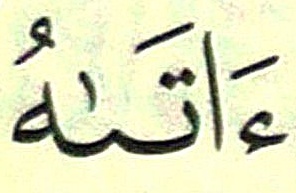 ءَاتَىٰهُ